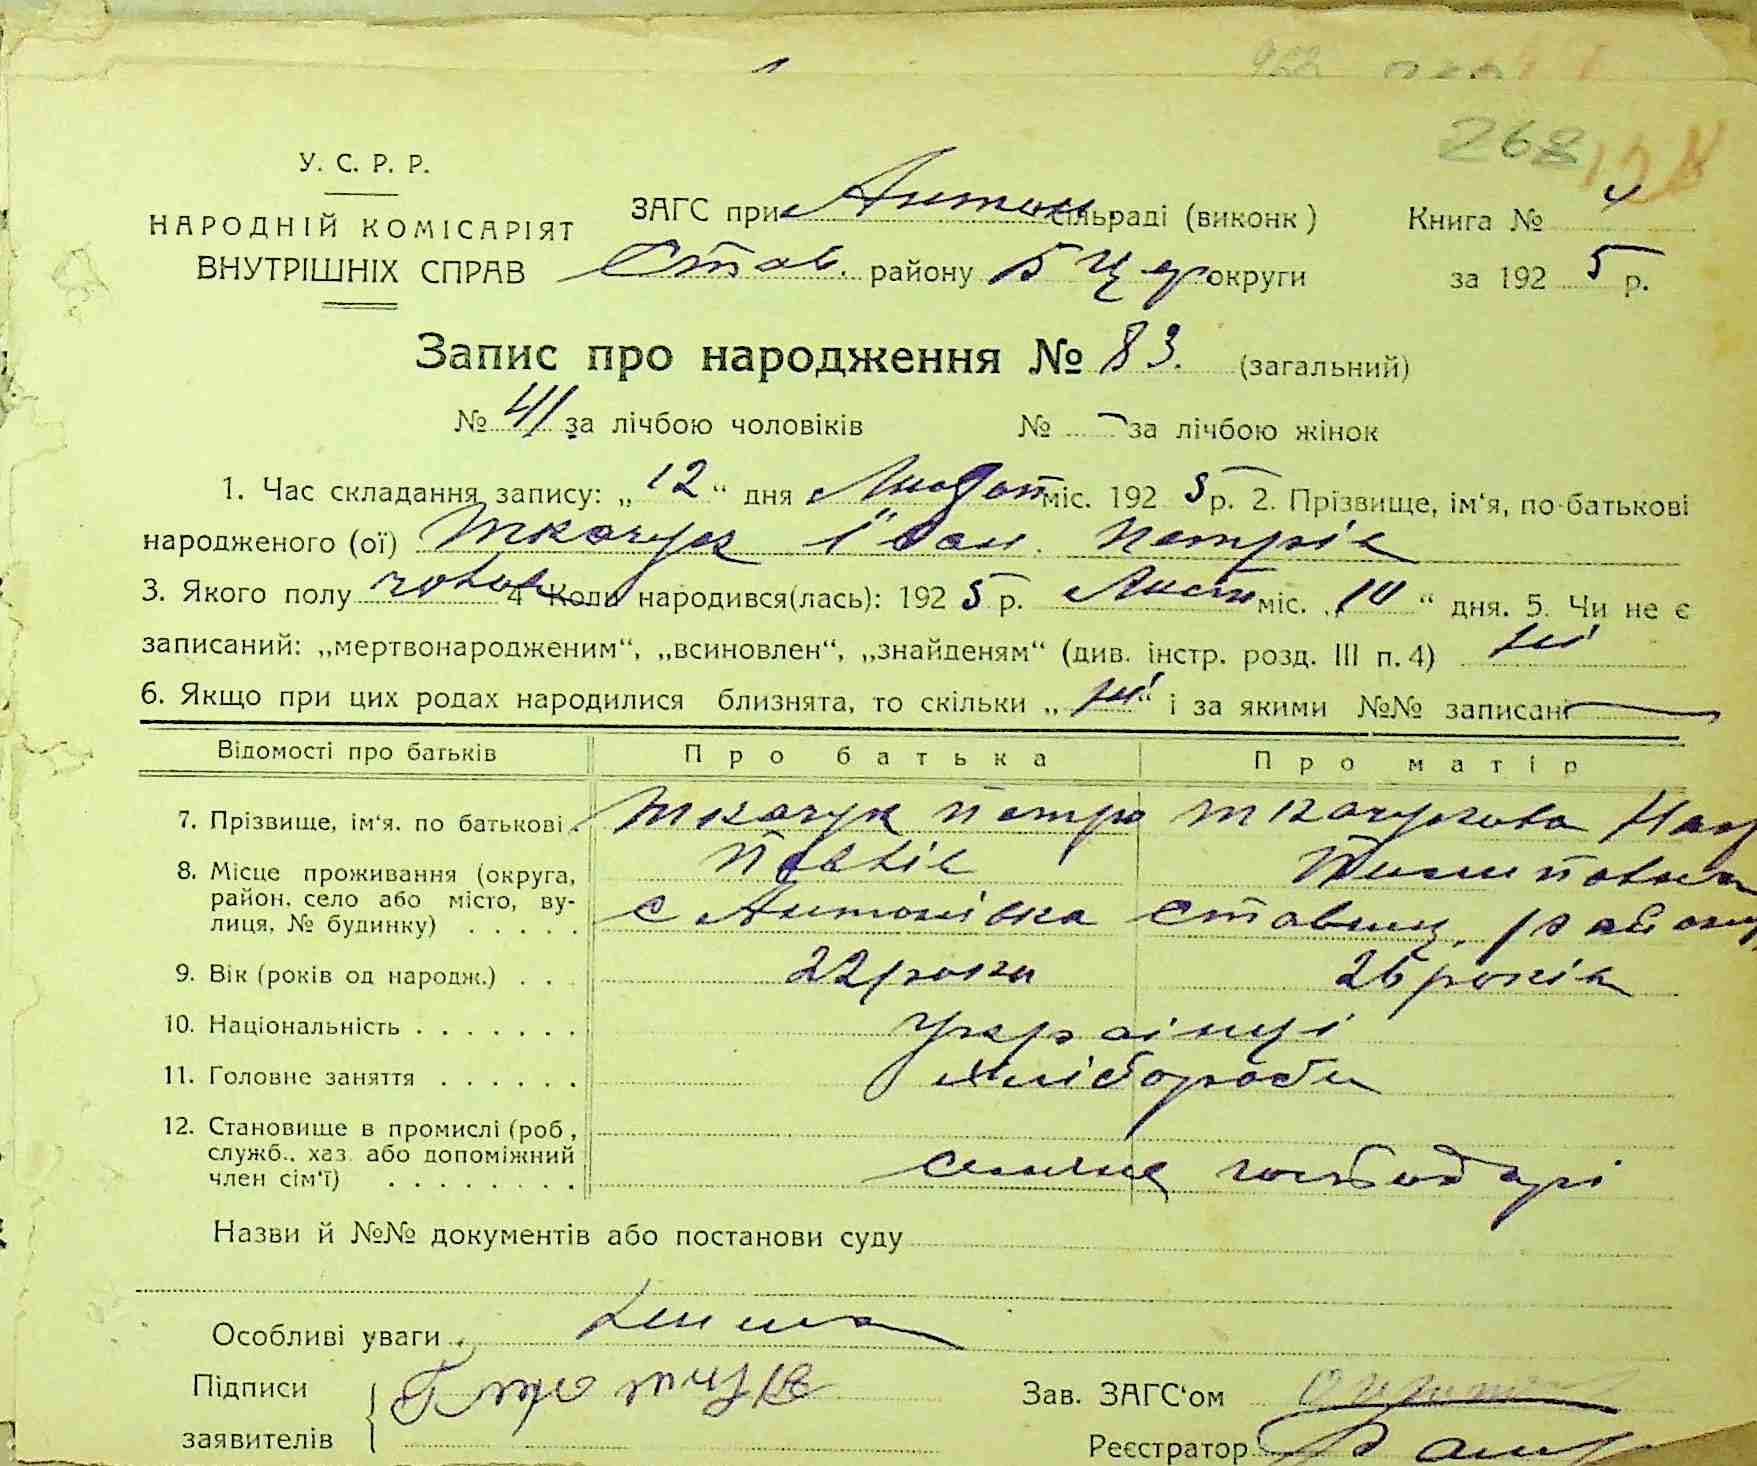 268
У. С. Р. Р.
НАРОДНІЙ КОМІСАРІЯТ
ВНУТРІШНІХ СПРАВ
ЗАГС при Антон сільраді (виконк)
Книга № 4
Став. району БЦер округи
за 1925 р.
Запис про народження № 83. (загальний)
№ 41 за лічбою чоловіків № — за лічбою жінок
1. Час складання запису: „12“ дня Листоп міс. 1925 р. 2. Прізвище, ім‘я, по-батькові
народженого (ої) Ткачук Іван Петрів
3. Якого полу чолов 4 Коли народився(лась): 1925 р. Лист міс. „10“ дня. 5. Чи не є
записаний: „мертвонародженим“, „всиновлен“, „знайденям“ (див. інстр. розд. III п. 4) ні
6. Якщо при цих родах народилися близнята, то скільки „ні“ і за якими №№ записані —
Відомості про батьків Про батька Про матір
7. Прізвище, ім‘я. по батькові. Ткачук Петро Ткачукова
Павлів Пилиповна
8. Місце проживання (округа,
район, село або місто, ву-
лиця, № будинку) . . . . . с Антонівка Ставищ. району
9. Вік (років од народж.) . . . 22 роки 26 років
10. Національність . . . . . . . українці
11. Головне заняття . . . . . . хлібороби
12. Становище в промислі (роб,
служб., хаз. або допоміжний
член сім‘ї) . . . . . . . . господарі
Назви й №№ документів або постанови суду
Особливі уваги .
Підписи
заявителів
Зав. ЗАГС‘ом
Реєстратор